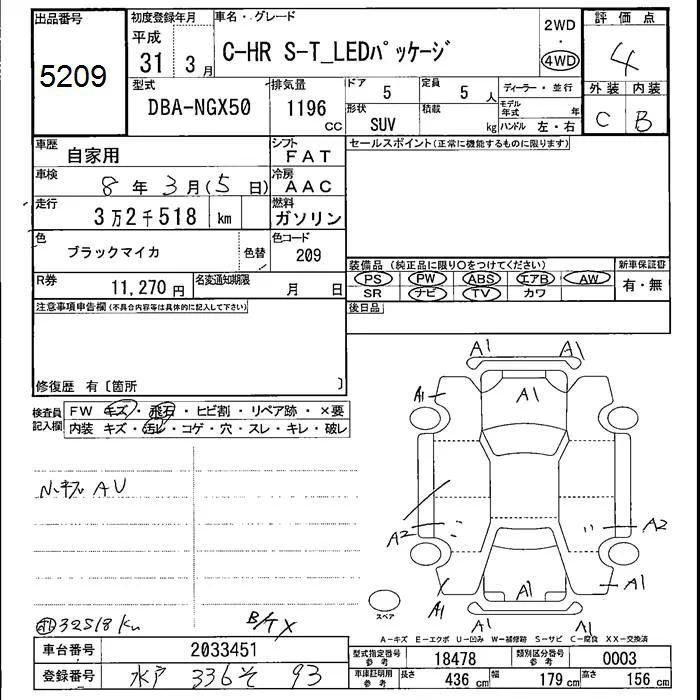 出品番号
5209
初度登録年月
平成
31 3月
車名・グレード
C-HR S-T_LEDパッケージ
2WD
・
4WD
評価点
4
外装 内装
C B
型式
DBA-NGX50
排気量
1196
cc
ドア 5
定員 5 人
形状 SUV
積載 kg
ディーラー・並行
モデル年式 年
ハンドル 左・右
車歴 自家用
シフト FAT
車検 8年3月(5日)
冷房 AAC
走行 3万2千518 km
燃料 ガソリン
色 ブラックマイカ
色替
色コード 209
R券 11,270円
名変通知期限 月 日
セールスポイント(正常に機能するものに限ります)
装備品 (純正品に限り〇をつけてください)
PS PW ABS エアB AW
SR ナビ TV カワ
新車保証書
有・無
後日品
注意事項申告欄(不具合内容等は具体的に記入して下さい)
修復歴 有〔箇所 〕
検査員記入欄
FW キズ・飛石・ヒビ割・リペア跡・×要
内装 キズ・汚レ・コゲ・穴・スレ・キレ・破レ
A1 A1
A1 A1
A2 A2
A1 A1 A1
A1 A1
スペア
32518km
A-キズ E-エクボ U-凹み W-補修跡 S-サビ C-腐食 XX-交換済
車台番号 2033451
登録番号 水戸 336 そ 93
型式指定番号 参考 18478
類別区分番号 参考 0003
車庫証明用 参考 長さ 436 cm 幅 179 cm 高さ 156 cm